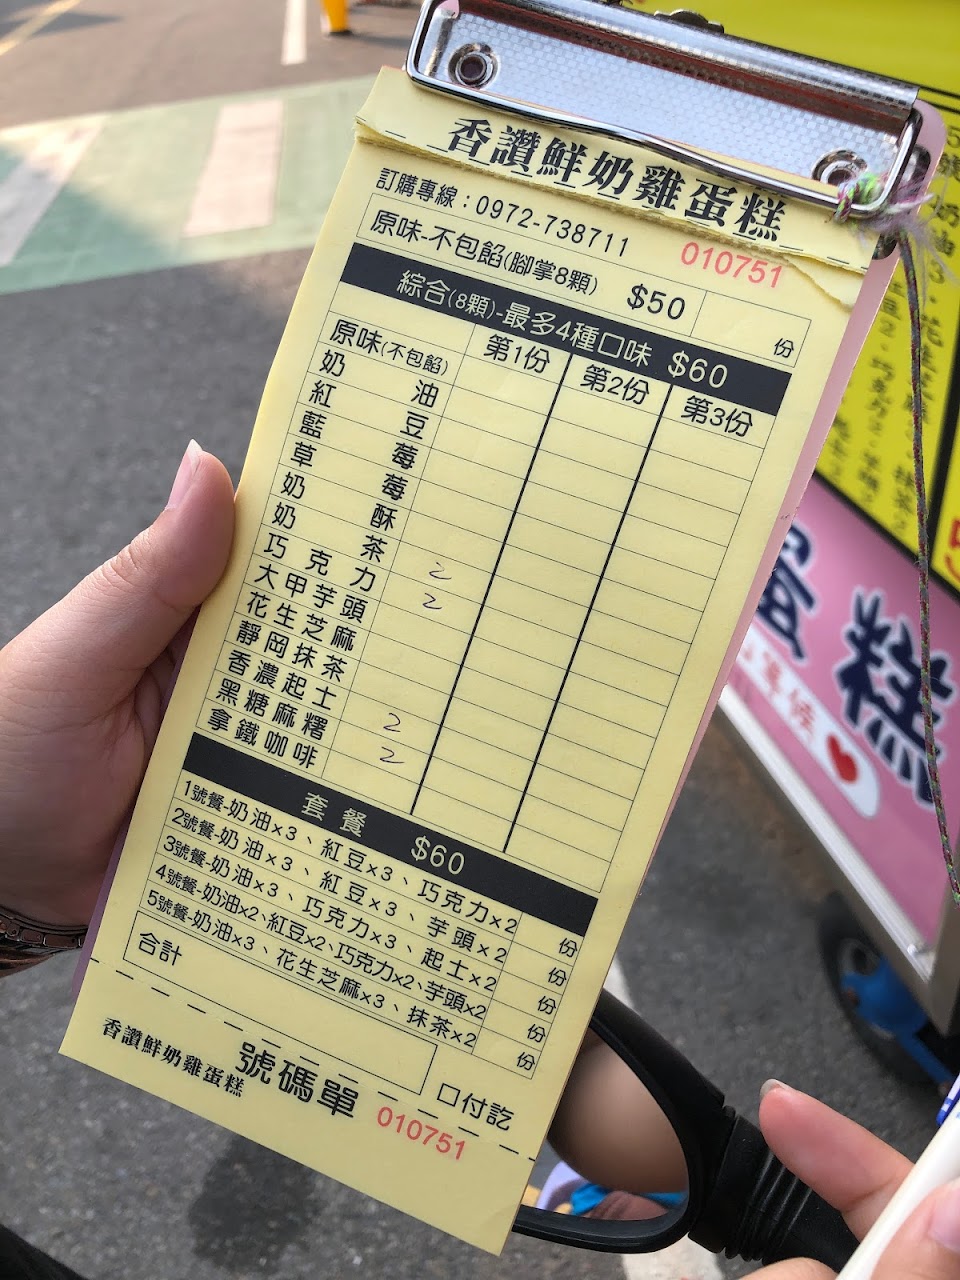 香讚鮮奶雞蛋糕
訂購專線：0972-738711 010751
原味-不包餡(腳掌8顆) $50 份
綜合(8顆)-最多4種口味 $60
第1份 第2份 第3份
原味(不包餡)
奶油
紅豆
藍莓
草莓
奶酥
奶茶 2
巧克力 2
大甲芋頭
花生芝麻
靜岡抹茶
香濃起士 2
黑糖麻糬 2
拿鐵咖啡
套餐 $60
1號餐-奶油×3、紅豆×3、巧克力×2 份
2號餐-奶油×3、紅豆×3、芋頭×2 份
3號餐-奶油×3、巧克力×3、起士×2 份
4號餐-奶油×2、紅豆×2、巧克力×2、芋頭×2 份
5號餐-奶油×3、花生芝麻×3、抹茶×2 份
合計
口付訖
香讚鮮奶雞蛋糕 號碼單 010751
蛋糕